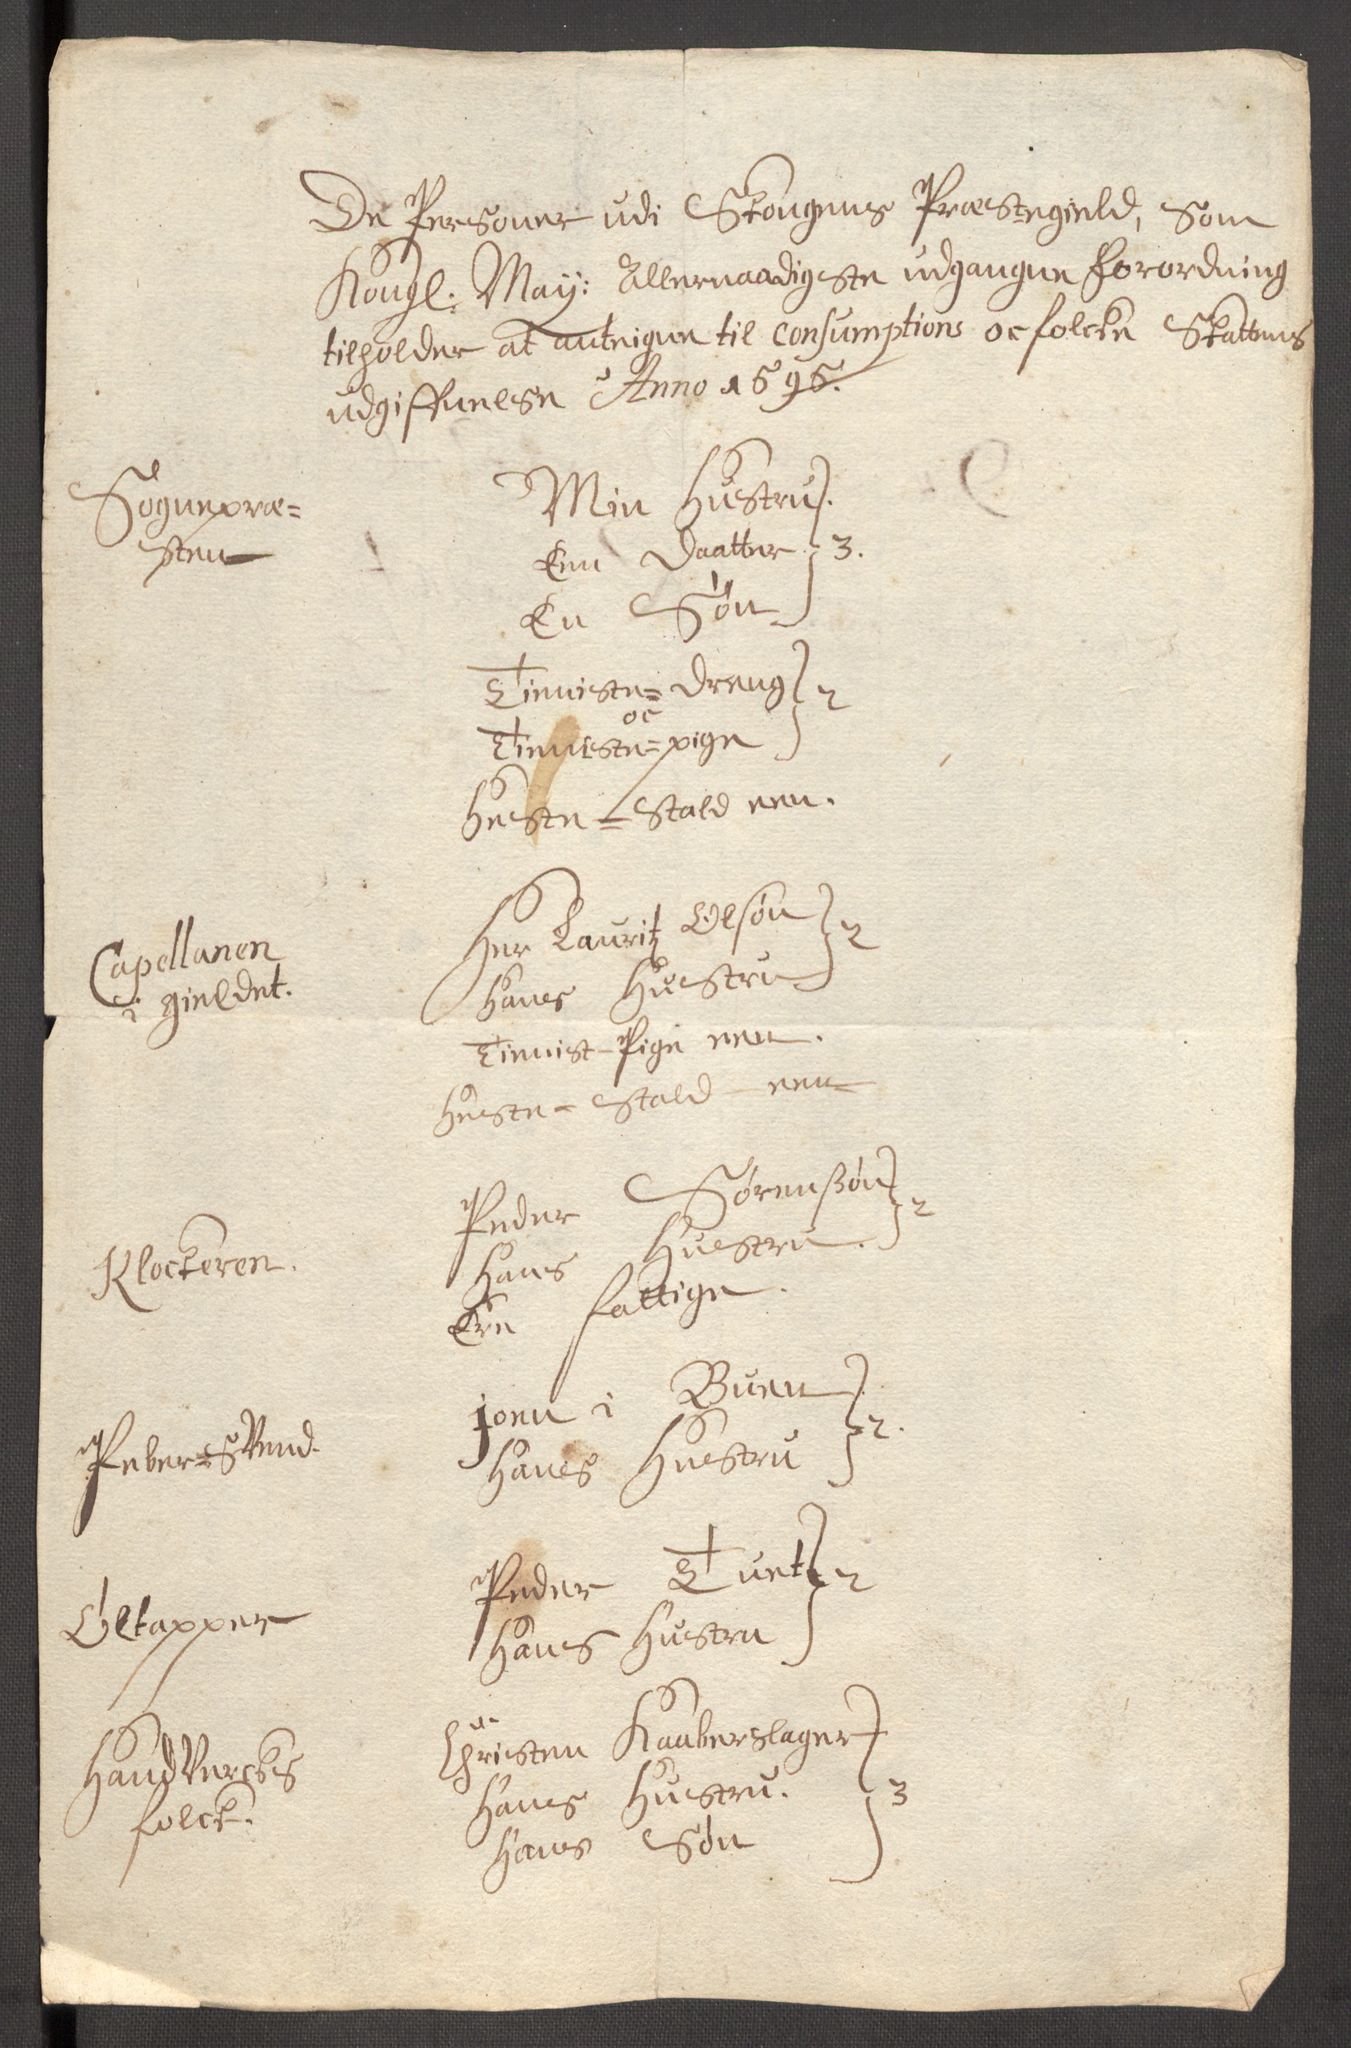 De Personer udi Skougens Præstegield, som
Kongl: May: Allernaadigste udgangne forordning
tilholder at anteigne til Consumptions oc folcke Skattens
udgiffuelse Anno 1695.
Sognepræ=
sten
Min Hustru
Een Daatter } 3.
En Søn
Tieniste= dreng
oc } 2
Tieniste=pige
Heste=Stald een.
Capellanen
i gieldet.
Her Lauritz Olsøn
Hans Huestru } 2
Tienist-Pige een.
Heste= Stald een
Klockeren.
Peder Sørenßøn
Hans Huestru. } 2
Ere fattige.
Peber=Svend.
Joen i Buen
Hans Huestru } 2.
Øltapper
Peder Tuet
Hans Hustru } 2
Handverckes
folck.
Christen Kaaberslager
Hans Huestru. } 3
Hans Søn